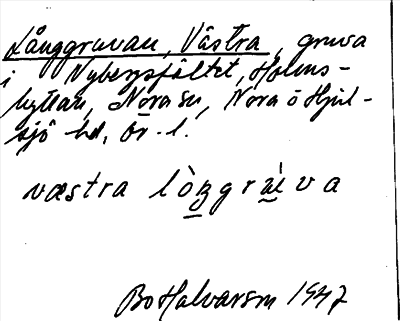 Långgruvan, Västra, gruva
i Nybergsfältet, Holms-
hyttan, Nora sn, Nora o Hjul-
sjö hd, Ör. l.
væstra lòŋgrʉ̀va
Bo Halvarsson 1947